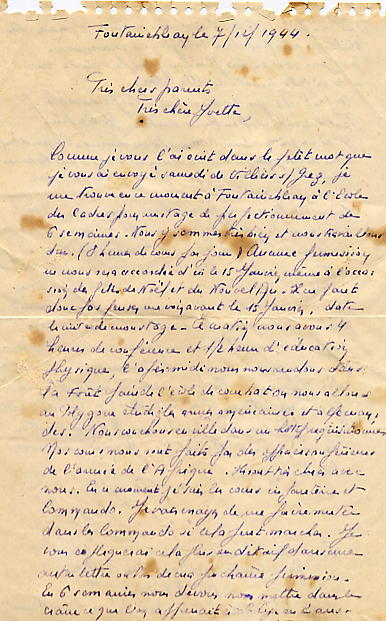 Fontainebleau le 7/12/1944.
Très chers parents
Très chère Yvette,
Comme je vous l'ai écrit dans le petit mot que
je vous ai envoyé samedi de Villiers s/ Grez, je
me trouve en ce moment à Fontainebleau à l'Ecole
des Cadres pour un stage de perfectionnement de
6 semaines. Nous y sommes très bien et nous travaillons
dur. (8 heures de cours par jour) Aucune permission
ne nous sera accordée d'ici le 15 Janvier, même à l'occa
sion des fêtes de Noël et du Nouvel An. Il ne faut
donc pas penser me voir avant le 15 Janvier, date
de mon stage. Le matin, nous avons 4
heures de conférence et 1/2 heure d'éducation
physique, l'après-midi nous nous rendons dans
la Forêt faire de l'école de combat ou nous allons
au Polygone étudier les armes américaines et alleman
des. Nous couchons en ville dans un hôtel réquisitionné.
Nos cours nous sont faits par des officiers
de l'armée de l'Afrique. Ils sont très chics avec
nous. En ce moment je suis les cours et
commando. Je vais essayer de me faire muter
dans les commandos si cela peut marcher. Je
vous expliquerai cela plus en détail dans une
autre lettre ou lors de ma prochaine permission.
En 6 semaines nous devons nous mettre dans le
crâne ce que l'on apprenait en 2 ans